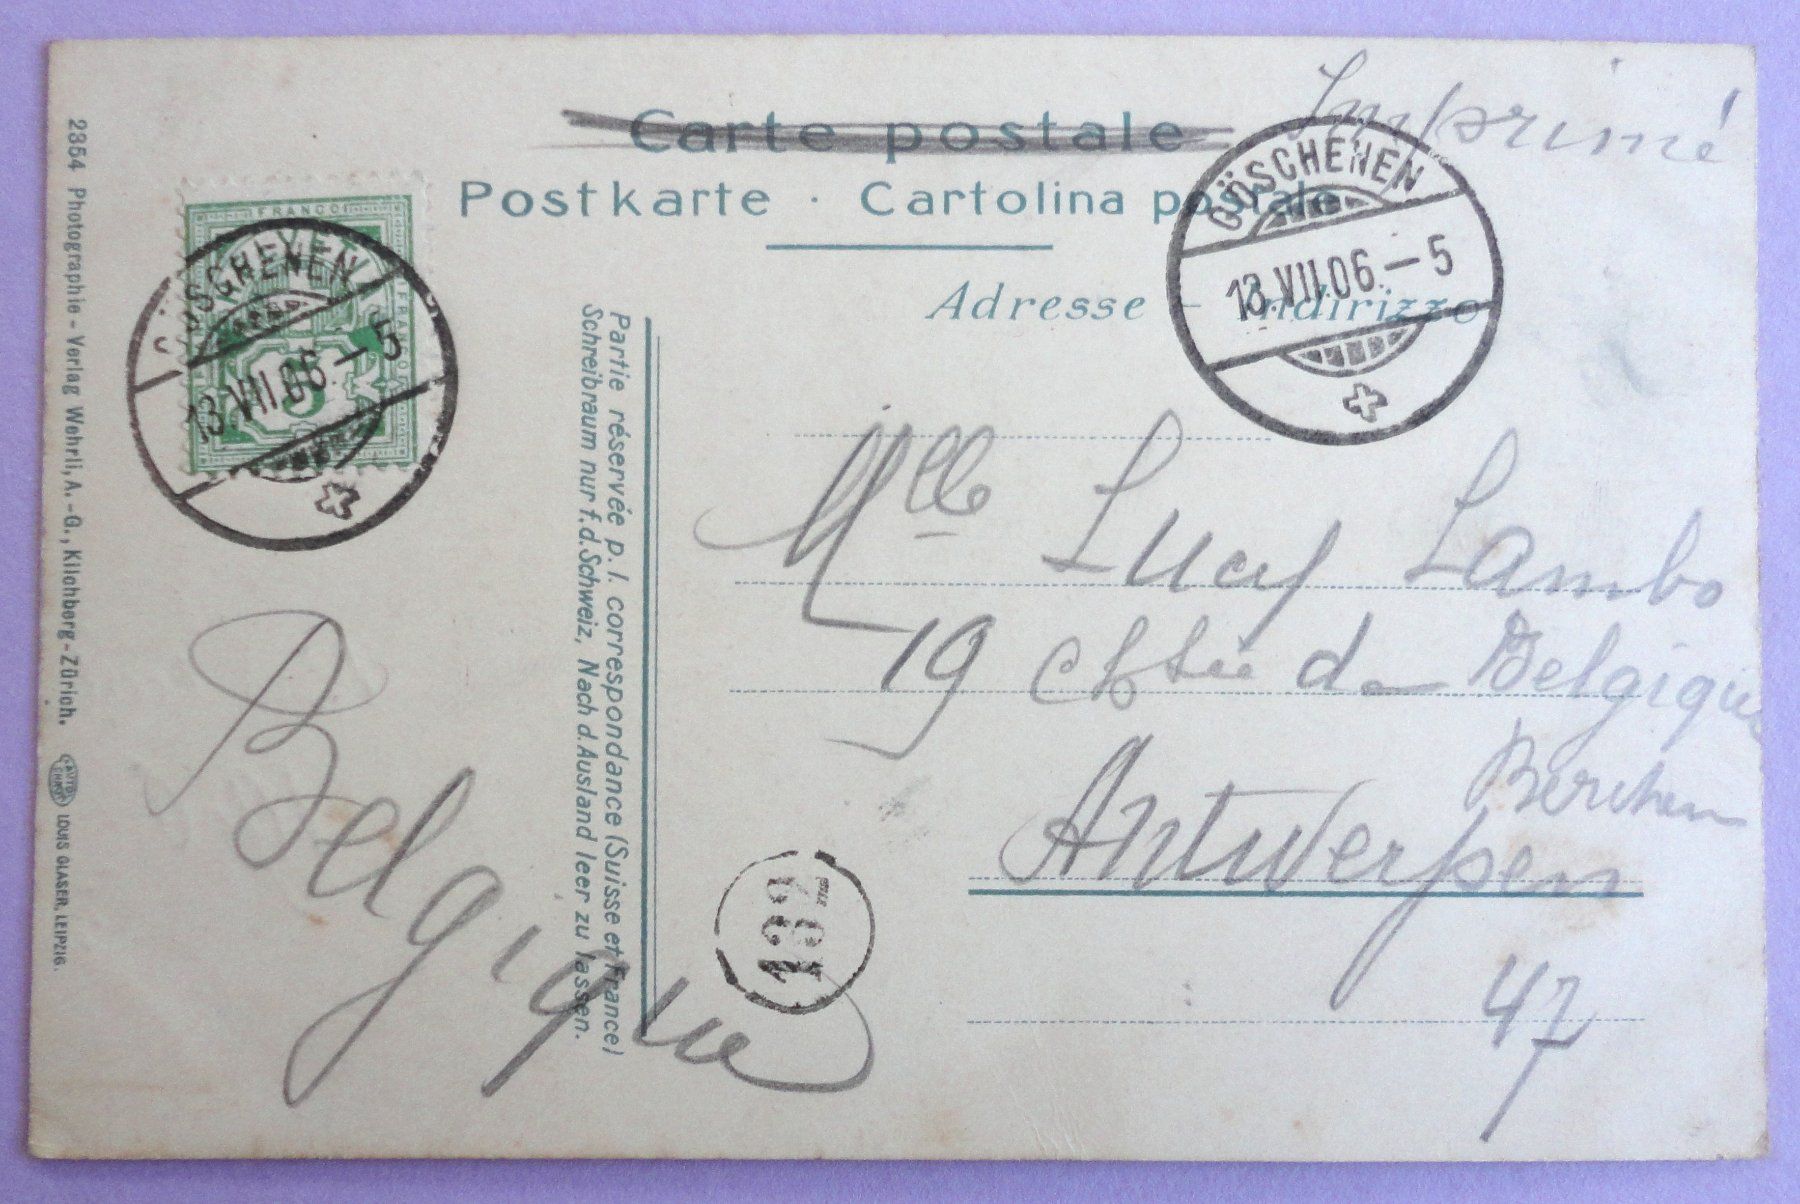 Carte postale
Imprimé
Postkarte · Cartolina postale
Adresse – Indirizzo
GÖSCHENEN
13.VII.06.–5
FRANCO
FRANCO
5
GÖSCHENEN
13.VII.06.–5
Mlle Lucy Lambo
19 chssée de Belgique
Berchem
Antwerpen
47
Belgique
132
Partie réservée p. l. correspondance (Suisse et France)
Schreibraum nur f. d. Schweiz, Nach d. Ausland leer zu lassen.
2354 Photographie-Verlag Wehrli, A.-G., Kilchberg-Zürich.
AUTOCHROM
LOUIS GLASER, LEIPZIG.